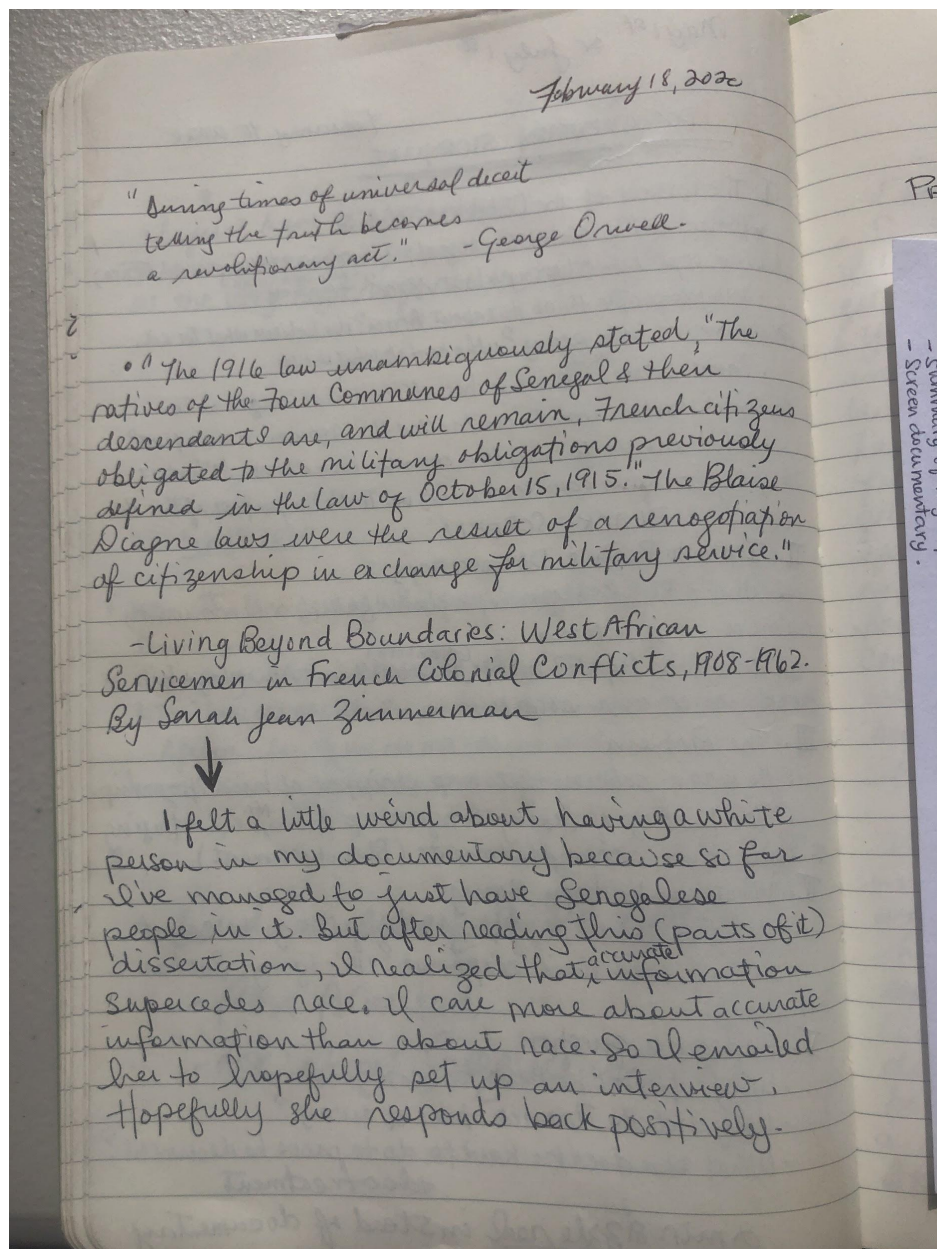 February 18, 2020
"During times of universal deceit
telling the truth becomes
a revolutionary act." - George Orwell.
• " The 1916 law unambiguously stated, "The
natives of the Four Communes of Senegal & their
descendants are, and will remain, French citizens
obligated to the military obligations previously
defined in the law of October 15, 1915." The Blaise
Diagne laws were the result of a renogotiation
of citizenship in exchange for military service."
- Living Beyond Boundaries: West African
Servicemen in French Colonial Conflicts, 1908-1962.
By Sarah Jean Zimmerman
I felt a little weird about having a white
person in my documentary because so far
I've managed to just have Senegalese
people in it. But after reading this (parts of it)
dissertation, I realized that accurate information
supercedes race. I care more about accurate
information than about race. So I emailed
her to hopefully set up an interview.
Hopefully she responds back positively.
- Screen documentary.